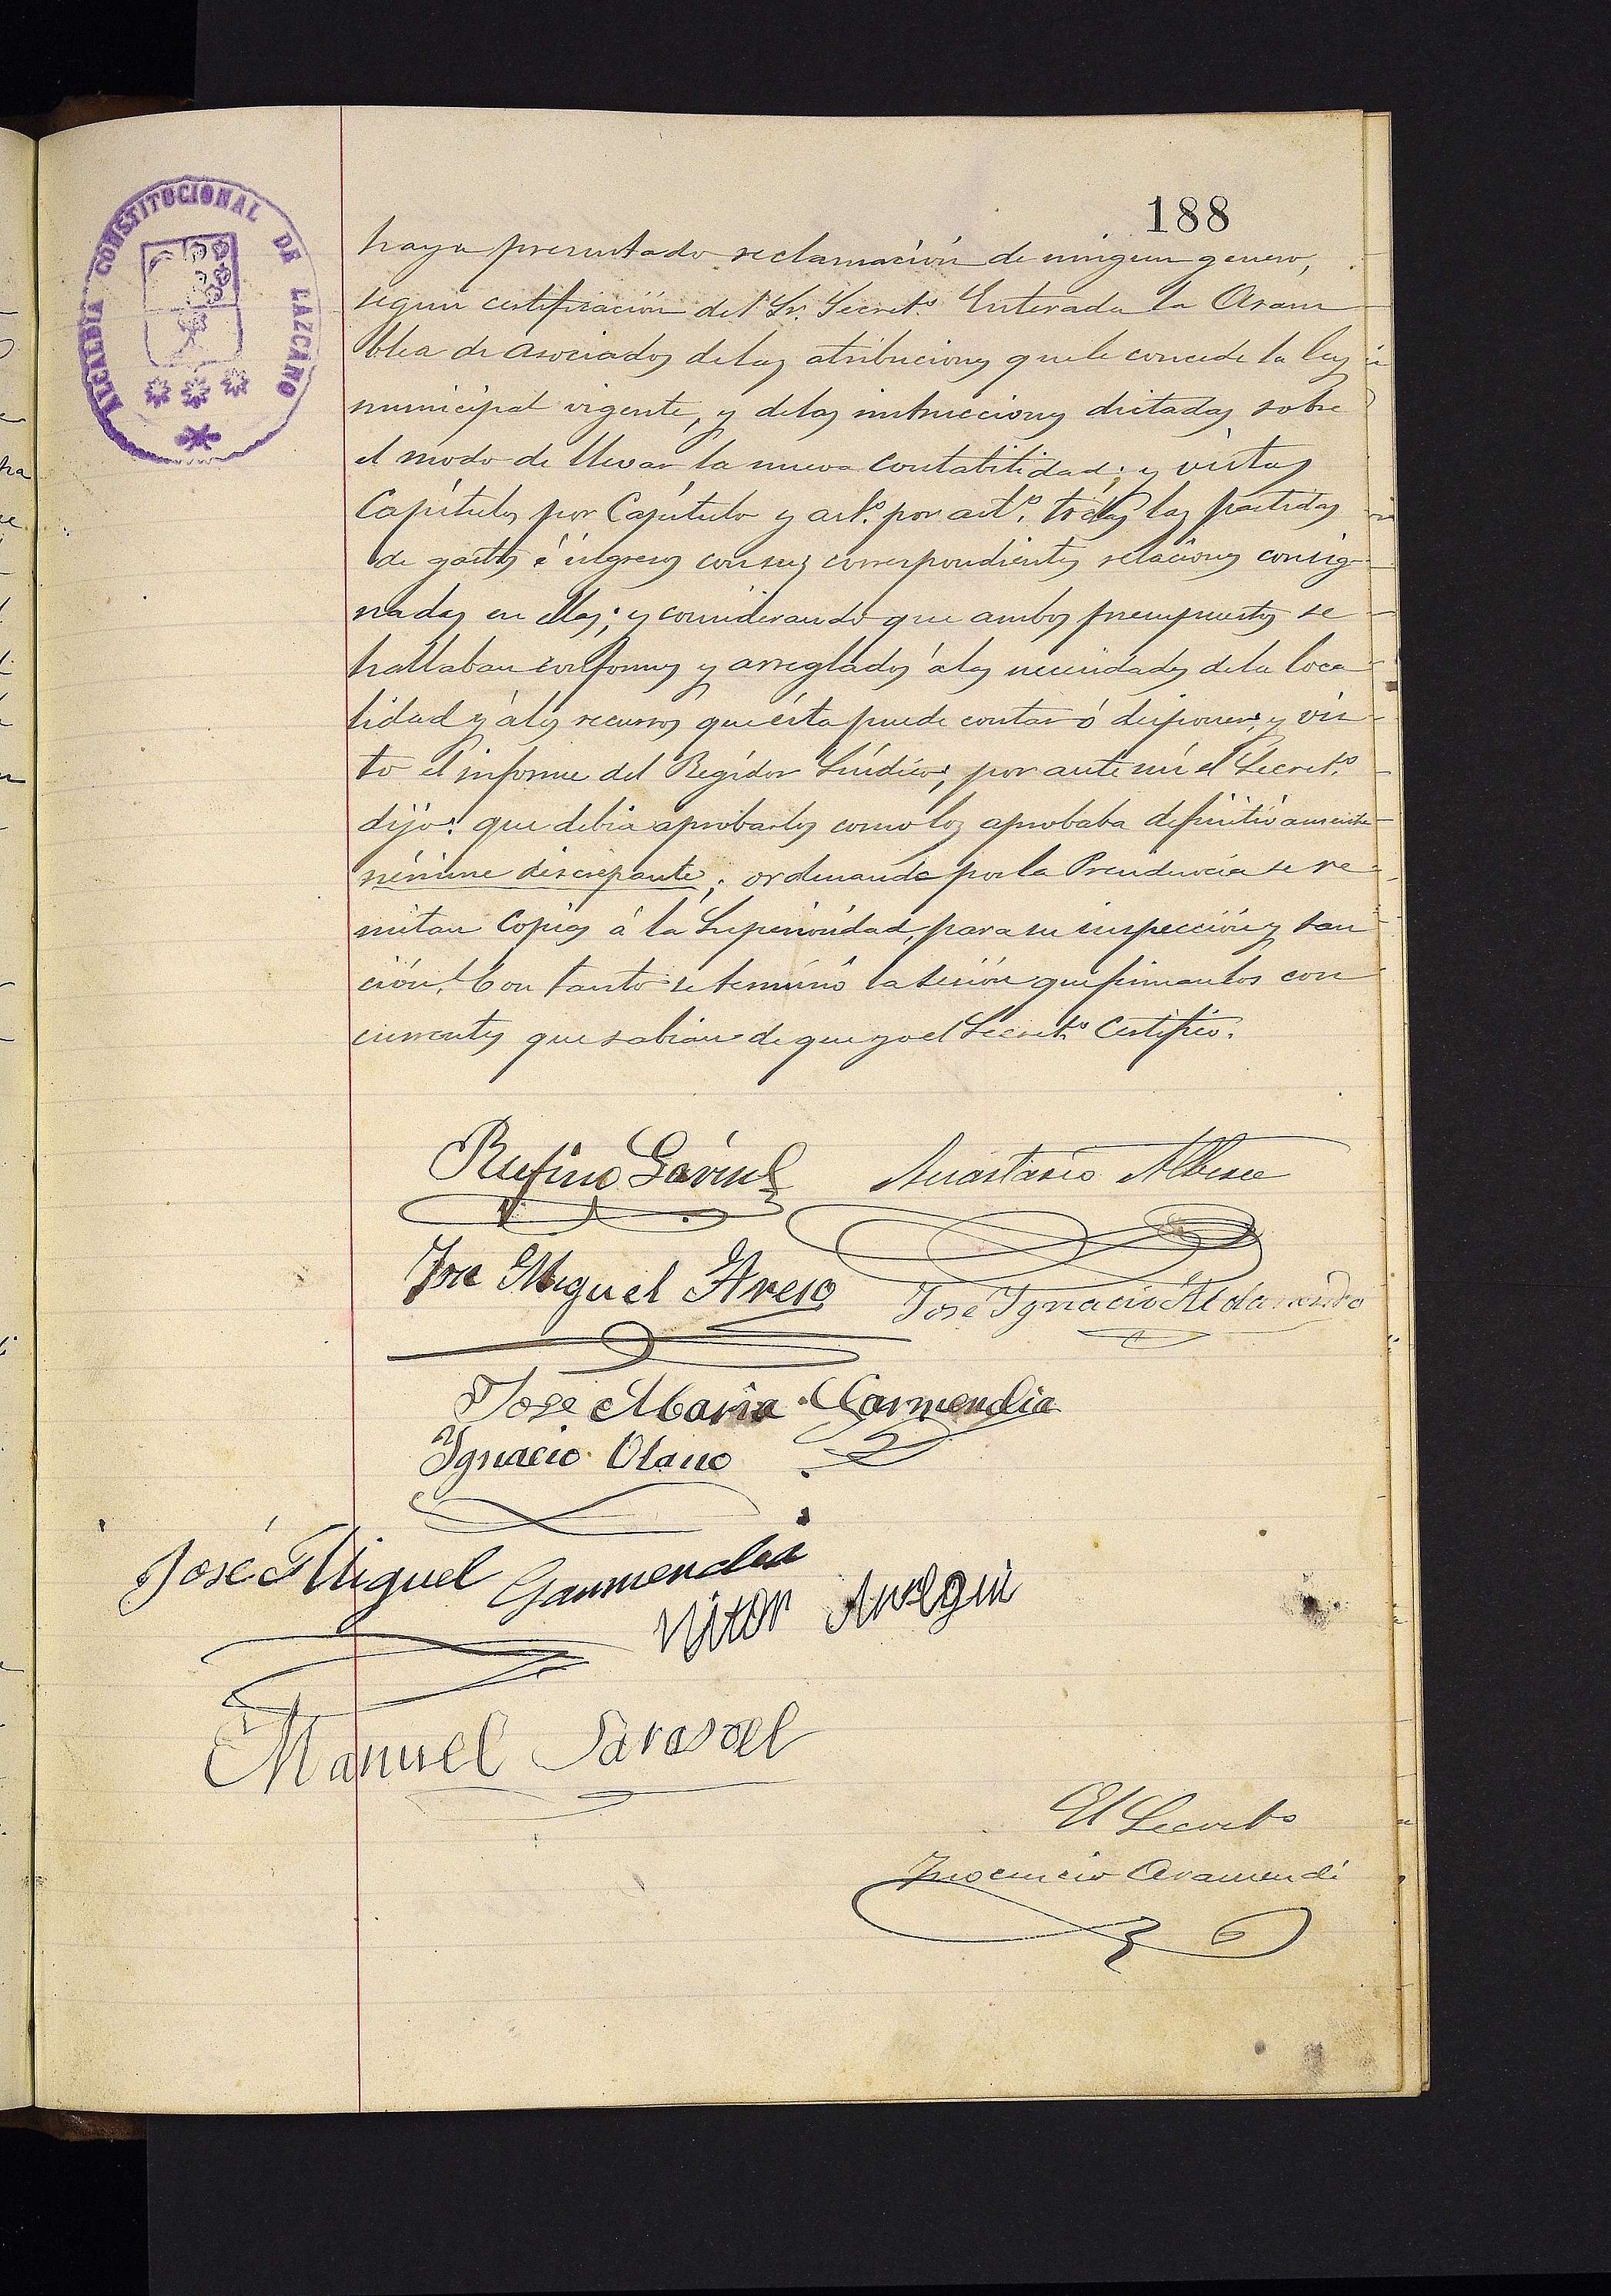 188
ALCALDIA CONSTITUCIONAL DE LAZCANO
haya presentado reclamación de ningun genero,
segun certificación del Sr. Secret.º Enterada la Asam
blea de asociados de las atribuciones que le concede la ley
municipal vigente, y de las instrucciones dictadas sobre
el modo de llevar la nueva contabilidad; y vistas
Capítulo por Capítulo y art.º por art.º, todas las partidas
de gastos é ingresos con sus correspondientes relaciones consig-
nadas en ellos; y considerando que ambos presupuestos se
hallaban conformes y arreglados á las necesidades de la loca
lidad y á los recursos que ésta puede contar ó disponer; y vis
to el informe del Regidor Síndico; por ante mí el Secret.º
dijo: que debia aprobarlos como los aprobaba definitivamente
némine discrepante; ordenando por la Presidencia se re
mitan copias á la Superioridad, para su inspección y san
ción. Con tanto se terminó la sesión que firman los con
currentes que sabian de que yo el Secret.º Certifico.
Rufino
Anastasio Albisu
Jose Miguel
José Ignacio Aldanondo
Jose Maria Garmendia
Ignacio Olano
José Miguel Garmendia
Vitor
Manuel Sarasael
El Secret.º
Inocencio Aramendi